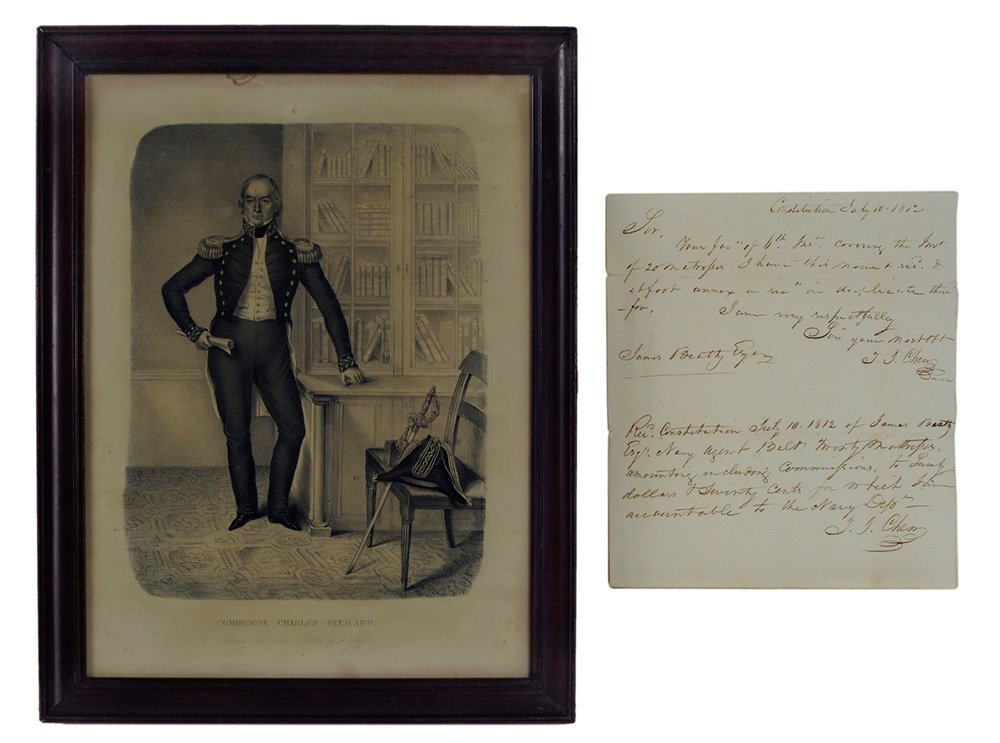 COMMODORE CHARLES STEWART
Constitution July 10. 1812
Sir,
Your favr. of 6th Inst. covering the Invo
of 20 Matrosses, I have this moment recd. &
at foot annex a rect. in duplicate there
-for. I am very respectfully
Sir your most obt
James Beatty Esqr T. J. Chew
Purser
Recd. Constitution July 10. 1812 of James Beatty
Esqr. Navy Agent Balto Twenty Matrosses,
amounting including Commissions, to Twenty
dollars & Seventy Cents for which I am
accountable to the Navy Dept
T. J. Chew